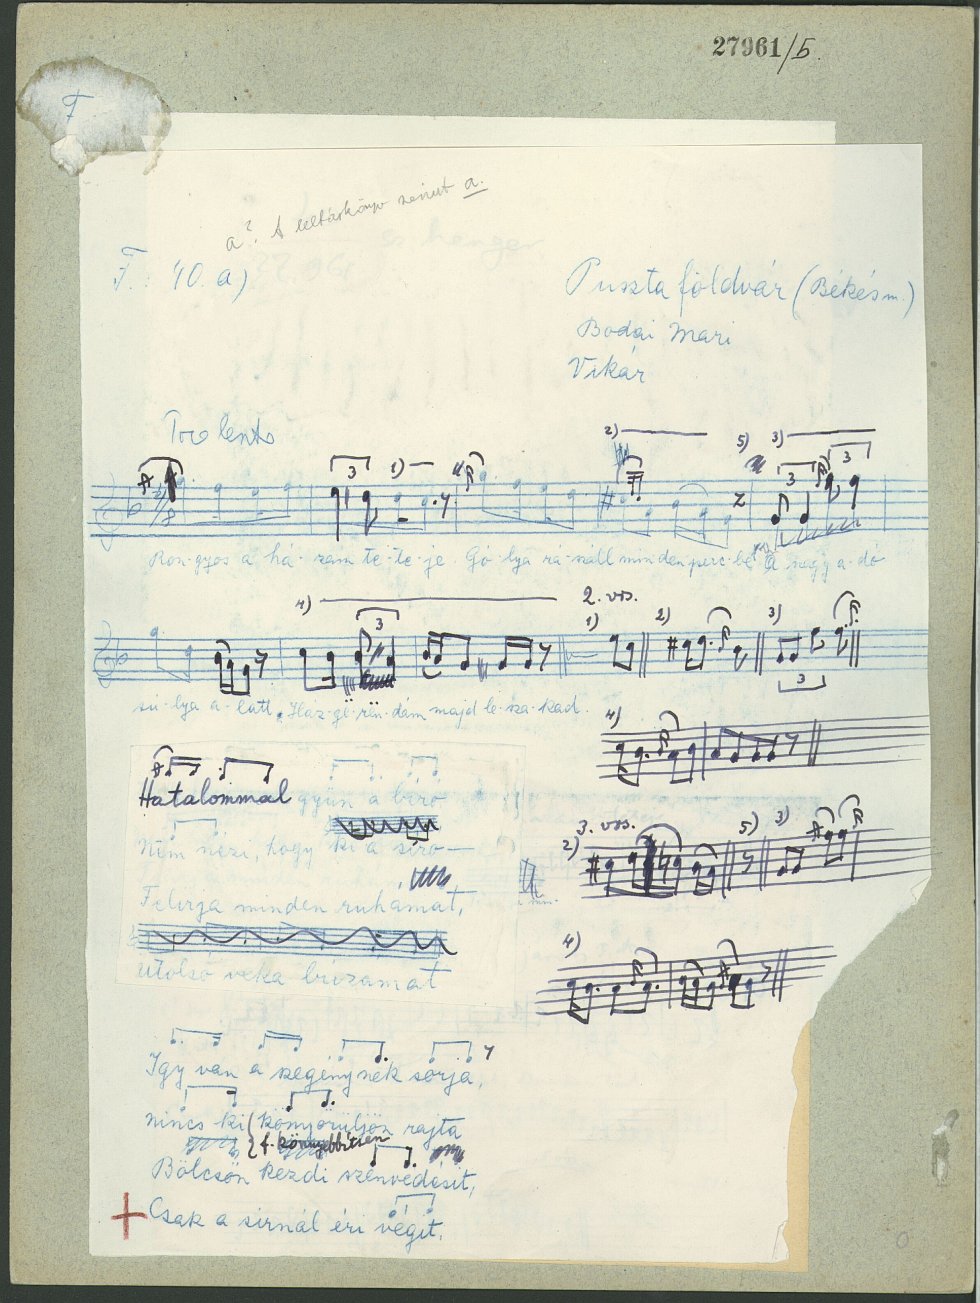 27961/5
F
a? A leltárkönyv szerint a.
F. 40. a)
Puszta földvár (Békés m.)
Bodai Mari
Vikár
Poco lento
2)
5) 3)
3 1) 3 3
Ron-gyos a há-zam te-te-je. Gó-lya rá-száll minden perc-be A nagy a-dó
4) 2. vrs.
3 1) 2) 3)
3
sú-lya a-latt, Haz-gë-rën-dám majd le-sza-kad.
4)
Hatalommal gyün a biró
3. vrs.
2) 5) 3)
Nem nézi, hogy ki a siró
Felirja minden ruhámat,
4)
Utolsó véka búzámat
Igy van a szegénynek sorja,
nincs ki (könyörüljön rajta
f. könnyebbítsen
Bölcsőn kezdi szenvedésit,
Csak a sirnál éri végit.